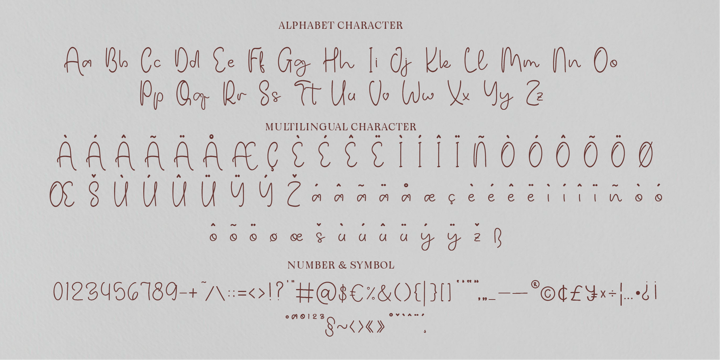 ALPHABET CHARACTER
Aa Bb Cc Dd Ee Ff Gg Hh Ii Jj Kk Ll Mm Nn Oo
Pp Qq Rr Ss Tt Uu Vv Ww Xx Yy Zz
MULTILINGUAL CHARACTER
À Á Â Ã Ä Å Æ Ç È É Ê Ë Ì Í Î Ï Ñ Ò Ó Ô Õ Ö Ø
Œ Š Ù Ú Û Ü Ÿ Ý Ž á â ã ä å æ ç è é ê ë ì í î ï ñ ò ó
ô õ ö ø œ š ù ú û ü ý ÿ ž ß
NUMBER & SYMBOL
0123456789-+¯/\:;=<>!?'"#@$€%&(){|}[]‘’“”‚„_–—®©¢£¥×÷¦…•¿¡
°ªº¹²³§~‹›«»